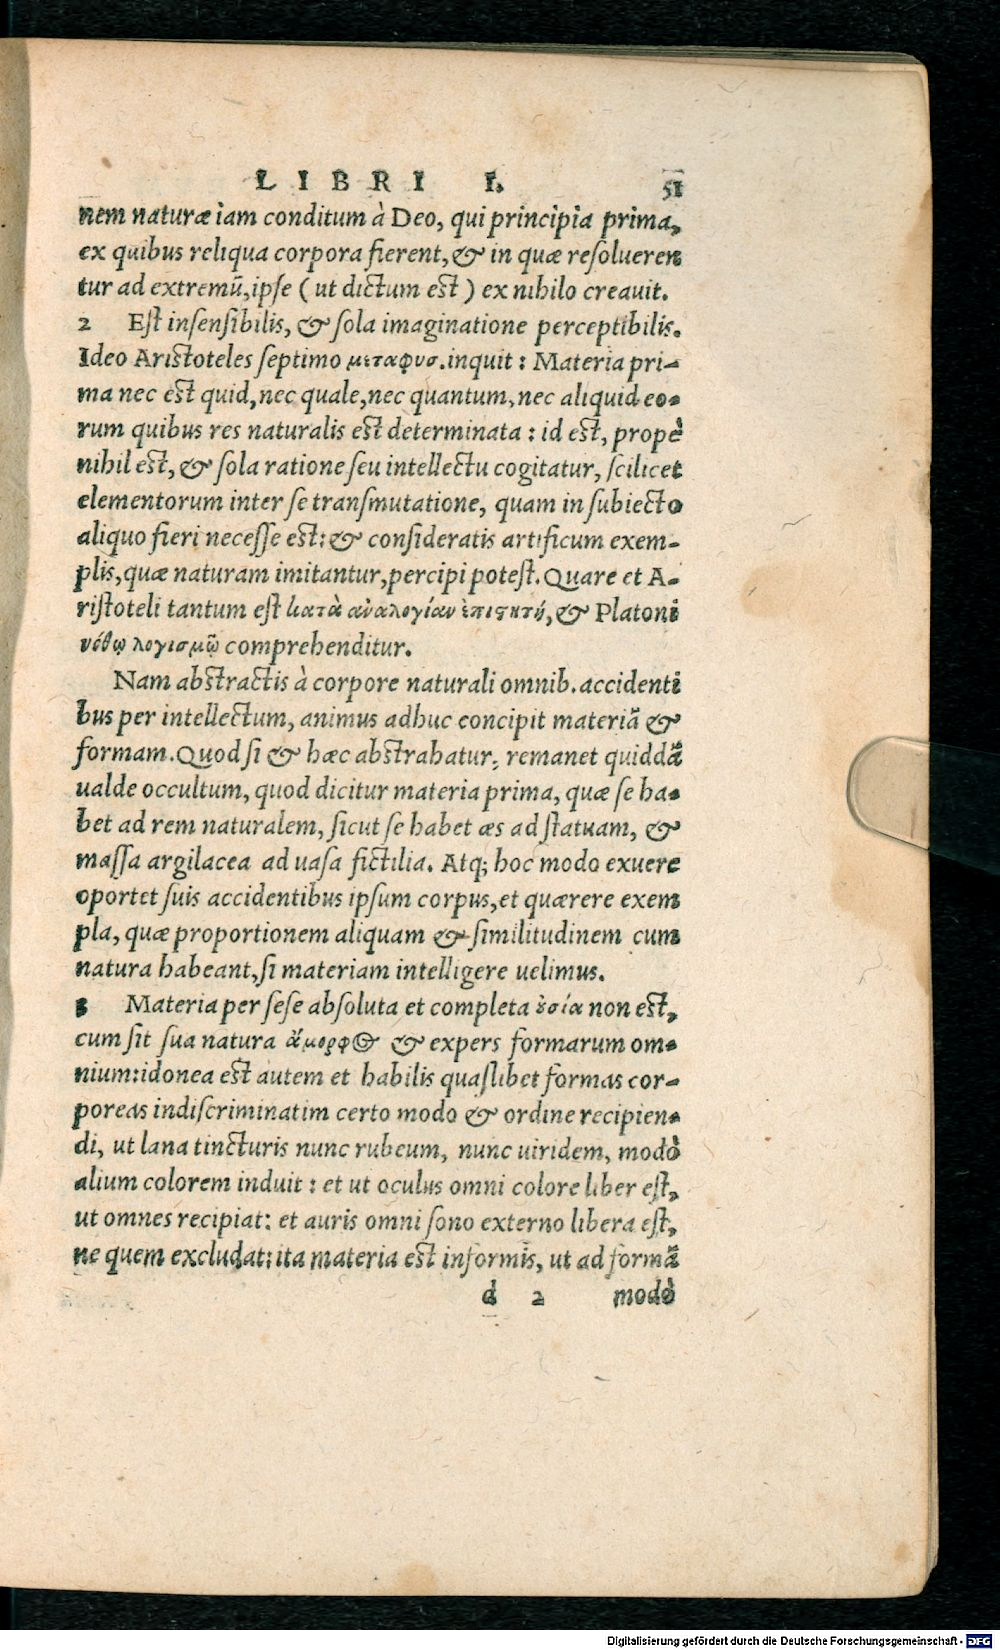 LIBRI I. 51
nem naturæ iam conditum à Deo, qui principia prima,
ex quibus reliqua corpora fierent, & in quæ resolueren
tur ad extremũ, ipse ( ut dictum est ) ex nihilo creauit.
2 Est insensibilis, & sola imaginatione perceptibilis.
Ideo Aristoteles septimo μεταφυσ. inquit : Materia pri-
ma nec est quid, nec quale, nec quantum, nec aliquid eo-
rum quibus res naturalis est determinata : id est, propè
nihil est, & sola ratione seu intellectu cogitatur, scilicet
elementorum inter se transmutatione, quam in subiecto
aliquo fieri necesse est: & consideratis artificum exem-
plis, quæ naturam imitantur, percipi potest. Quare et A-
ristoteli tantum est κατὰ ἀναλογίαν ἐπιστητή, & Platoni
νόθῳ λογισμῷ comprehenditur.
Nam abstractis à corpore naturali omnib. accidenti
bus per intellectum, animus adhuc concipit materiã &
formam. Quod si & hæc abstrahatur, remanet quiddã
ualde occultum, quod dicitur materia prima, quæ se ha-
bet ad rem naturalem, sicut se habet æs ad statuam, &
massa argilacea ad uasa fictilia. Atq; hoc modo exuere
oportet suis accidentibus ipsum corpus, et quærere exem
pla, quæ proportionem aliquam & similitudinem cum
natura habeant, si materiam intelligere uelimus.
3 Materia per sese absoluta et completa ȣ̓σία non est,
cum sit sua natura ἄμορφος & expers formarum om-
nium: idonea est autem et habilis quaslibet formas cor-
poreas indiscriminatim certo modo & ordine recipien-
di, ut lana tincturis nunc rubeum, nunc uiridem, modò
alium colorem induit : et ut oculus omni colore liber est,
ut omnes recipiat: et auris omni sono externo libera est,
ne quem excludat: ita materia est informis, ut ad formã
d 2 modò
Digitalisierung gefördert durch die Deutsche Forschungsgemeinschaft - DFG